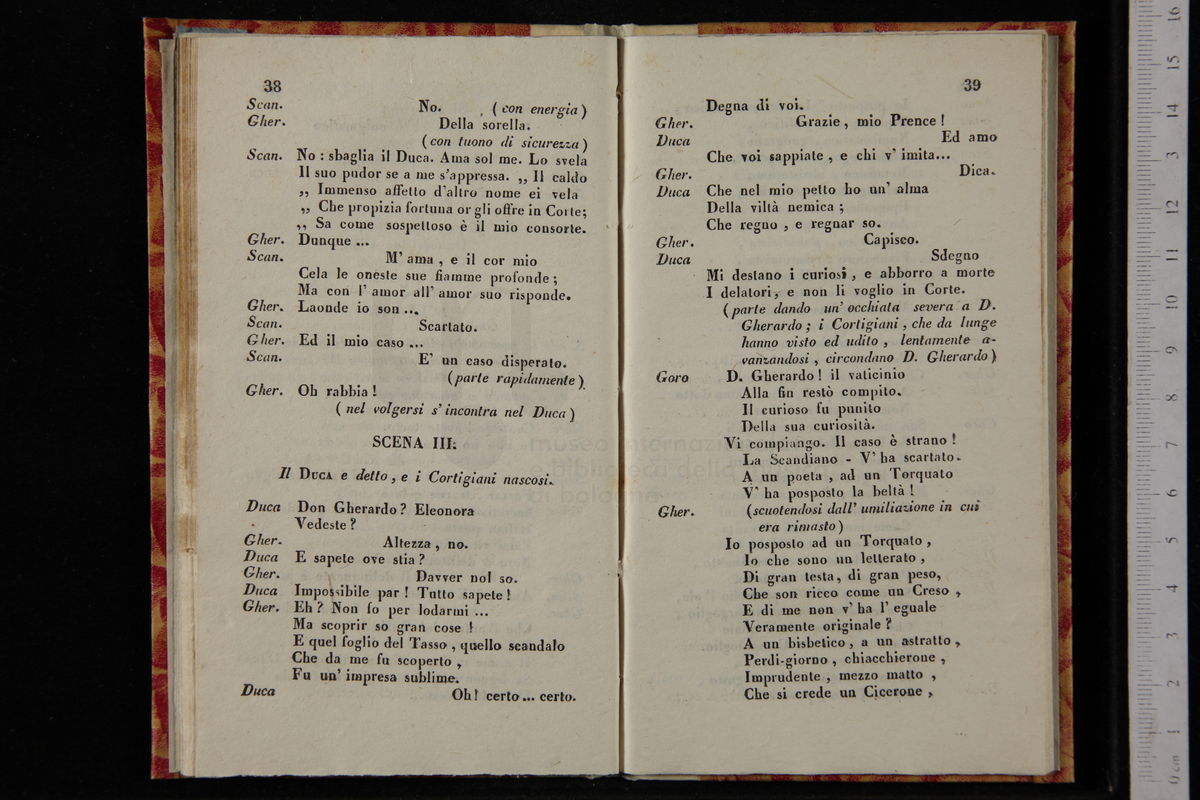 38
Scan. No. (con energia)
Gher. Della sorella.
(con tuono di sicurezza)
Scan. No : sbaglia il Duca. Ama sol me. Lo svela
Il suo pudor se a me s'appressa. ,, Il caldo
,, Immenso affetto d'altro nome ei vela
,, Che propizia fortuna or gli offre in Corte;
,, Sa come sospettoso è il mio consorte.
Gher. Dunque ...
Scan. M' ama , e il cor mio
Cela le oneste sue fiamme profonde ;
Ma con l' amor all' amor suo risponde.
Gher. Laonde io son ...
Scan. Scartato.
Gher. Ed il mio caso ...
Scan. E' un caso disperato.
(parte rapidamente)
Gher. Oh rabbia !
( nel volgersi s' incontra nel Duca )
SCENA III.
Il DUCA e detto , e i Cortigiani nascosi.
Duca Don Gherardo ? Eleonora
Vedeste ?
Gher. Altezza , no.
Duca E sapete ove stia ?
Gher. Davver nol so.
Duca Impossibile par ! Tutto sapete !
Gher. Eh ? Non fo per lodarmi ...
Ma scoprir so gran cose !
E quel foglio del Tasso , quello scandalo
Che da me fu scoperto ,
Fu un' impresa sublime.
Duca Oh ! certo ... certo.
39
Degna di voi.
Gher. Grazie , mio Prence !
Duca Ed amo
Che voi sappiate , e chi v' imita...
Gher. Dica.
Duca Che nel mio petto ho un' alma
Della viltà nemica ;
Che regno , e regnar so.
Gher. Capisco.
Duca Sdegno
Mi destano i curiosi , e abborro a morte
I delatori, e non li voglio in Corte.
(parte dando un' occhiata severa a D.
Gherardo ; i Cortigiani , che da lunge
hanno visto ed udito , lentamente a-
vanzandosi , circondano D. Gherardo)
Goro D. Gherardo ! il vaticinio
Alla fin restò compito.
Il curioso fu punito
Della sua curiosità.
Vi compiango. Il caso è strano !
La Scandiano - V' ha scartato.
A un poeta , ad un Torquato
V' ha posposto la beltà !
Gher. (scuotendosi dall' umiliazione in cui
era rimasto)
Io posposto ad un Torquato ,
Io che sono un letterato ,
Di gran testa, di gran peso,
Che son ricco come un Creso ,
E di me non v' ha l' eguale
Veramente originale ?
A un bisbetico , a un astratto ,
Perdi-giorno , chiacchierone ,
Imprudente , mezzo matto ,
Che si crede un Cicerone ,
museo internaz
e biblioteca della
di bologna
0 cm 1 2 3 4 5 6 7 8 9 10 11 12 13 14 15 16